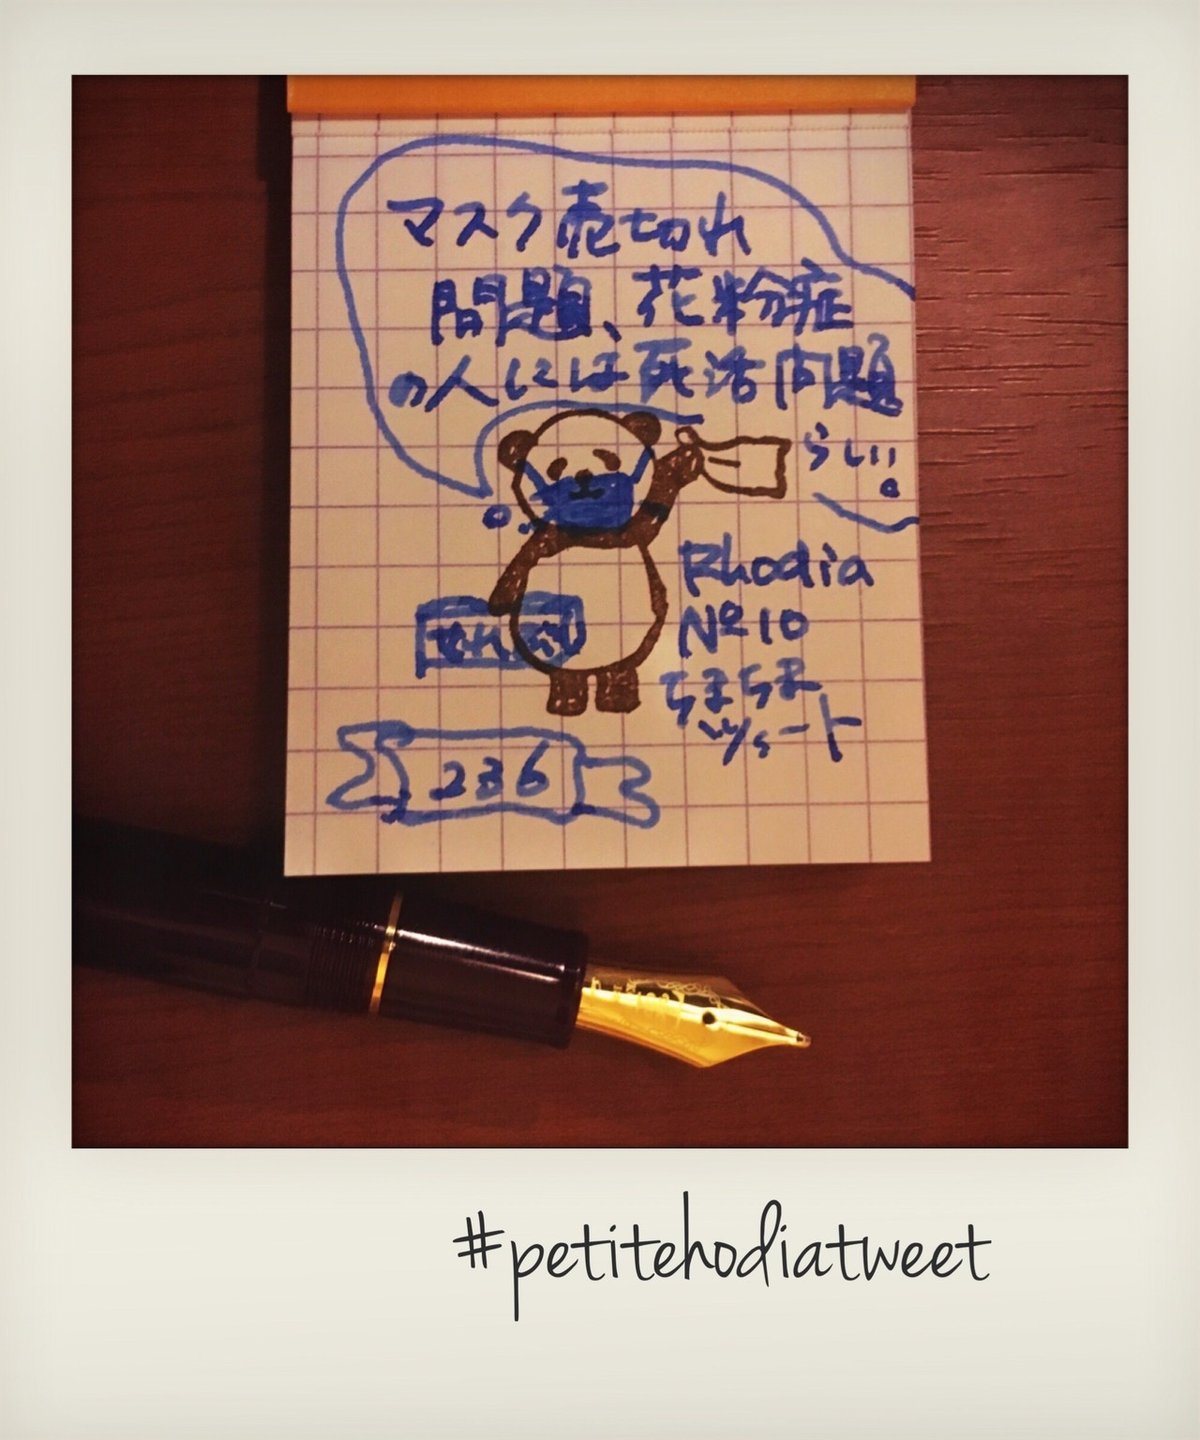 マスク売切れ
問題、花粉症
の人には死活問題
らしい。
Rhodia
Nº10
ちまちま
ツイート
236
#petitehodiatweet